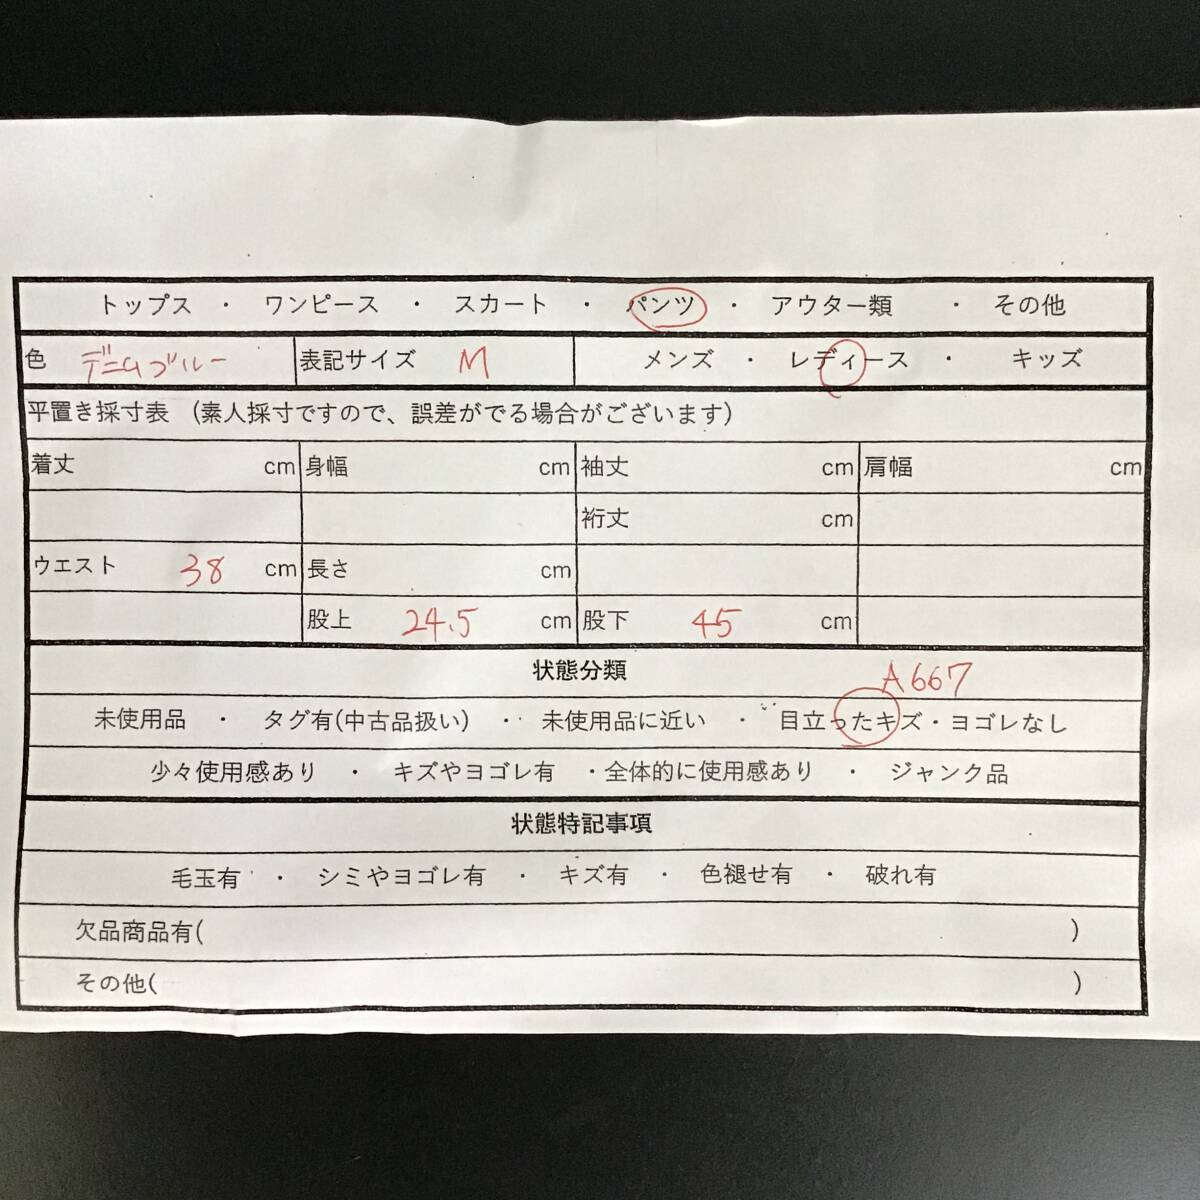 トップス ・ ワンピース ・ スカート ・ パンツ ・ アウター類 ・ その他
色 デニムブルー 表記サイズ M メンズ ・ レディース ・ キッズ
平置き採寸表 (素人採寸ですので、誤差がでる場合がございます)
着丈 cm 身幅 cm 袖丈 cm 肩幅 cm
裄丈 cm
ウエスト 38 cm 長さ cm
股上 24.5 cm 股下 45 cm
状態分類 A667
未使用品 ・ タグ有(中古品扱い) ・ 未使用品に近い ・ 目立ったキズ・ヨゴレなし
少々使用感あり ・ キズやヨゴレ有 ・全体的に使用感あり ・ ジャンク品
状態特記事項
毛玉有 ・ シミやヨゴレ有 ・ キズ有 ・ 色褪せ有 ・ 破れ有
欠品商品有( )
その他( )